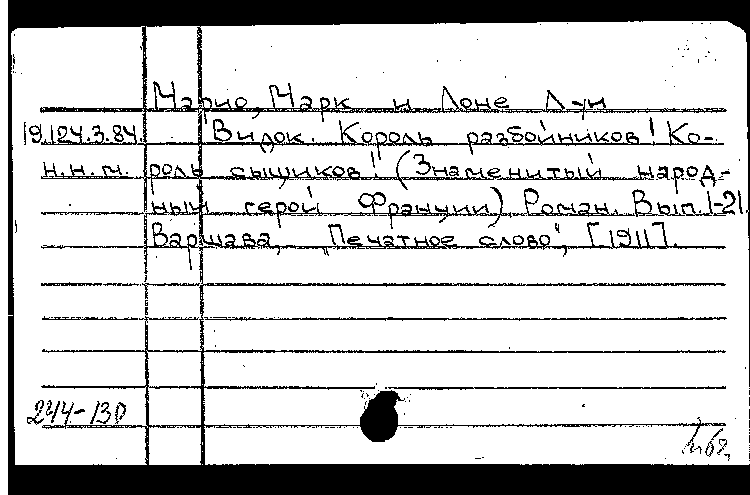 Марио, Марк и Лоне Луи
19.124.3.84. Видок. Король разбойников! Ко-
н.н.м. роль сыщиков!! (Знаменитый народ-
ный герой Франции) Роман. Вып. 1-21.
Варшава, „Печатное слово", [1911].
244-130